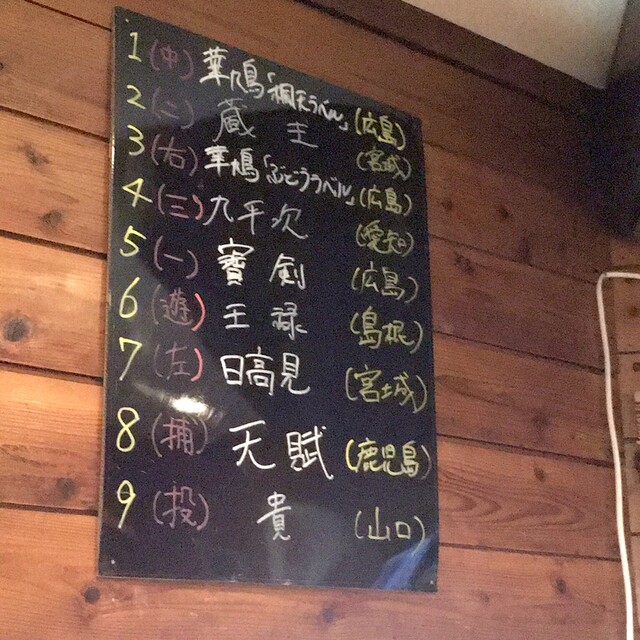 1 (中) 華鳩「楓天ラベル」 (広島)
2 (二) 蔵王 (宮城)
3 (右) 華鳩「ぶどうラベル」 (広島)
4 (三) 九平次 (愛知)
5 (一) 寶剣 (広島)
6 (遊) 王禄 (島根)
7 (左) 日高見 (宮城)
8 (捕) 天賦 (鹿児島)
9 (投) 貴 (山口)